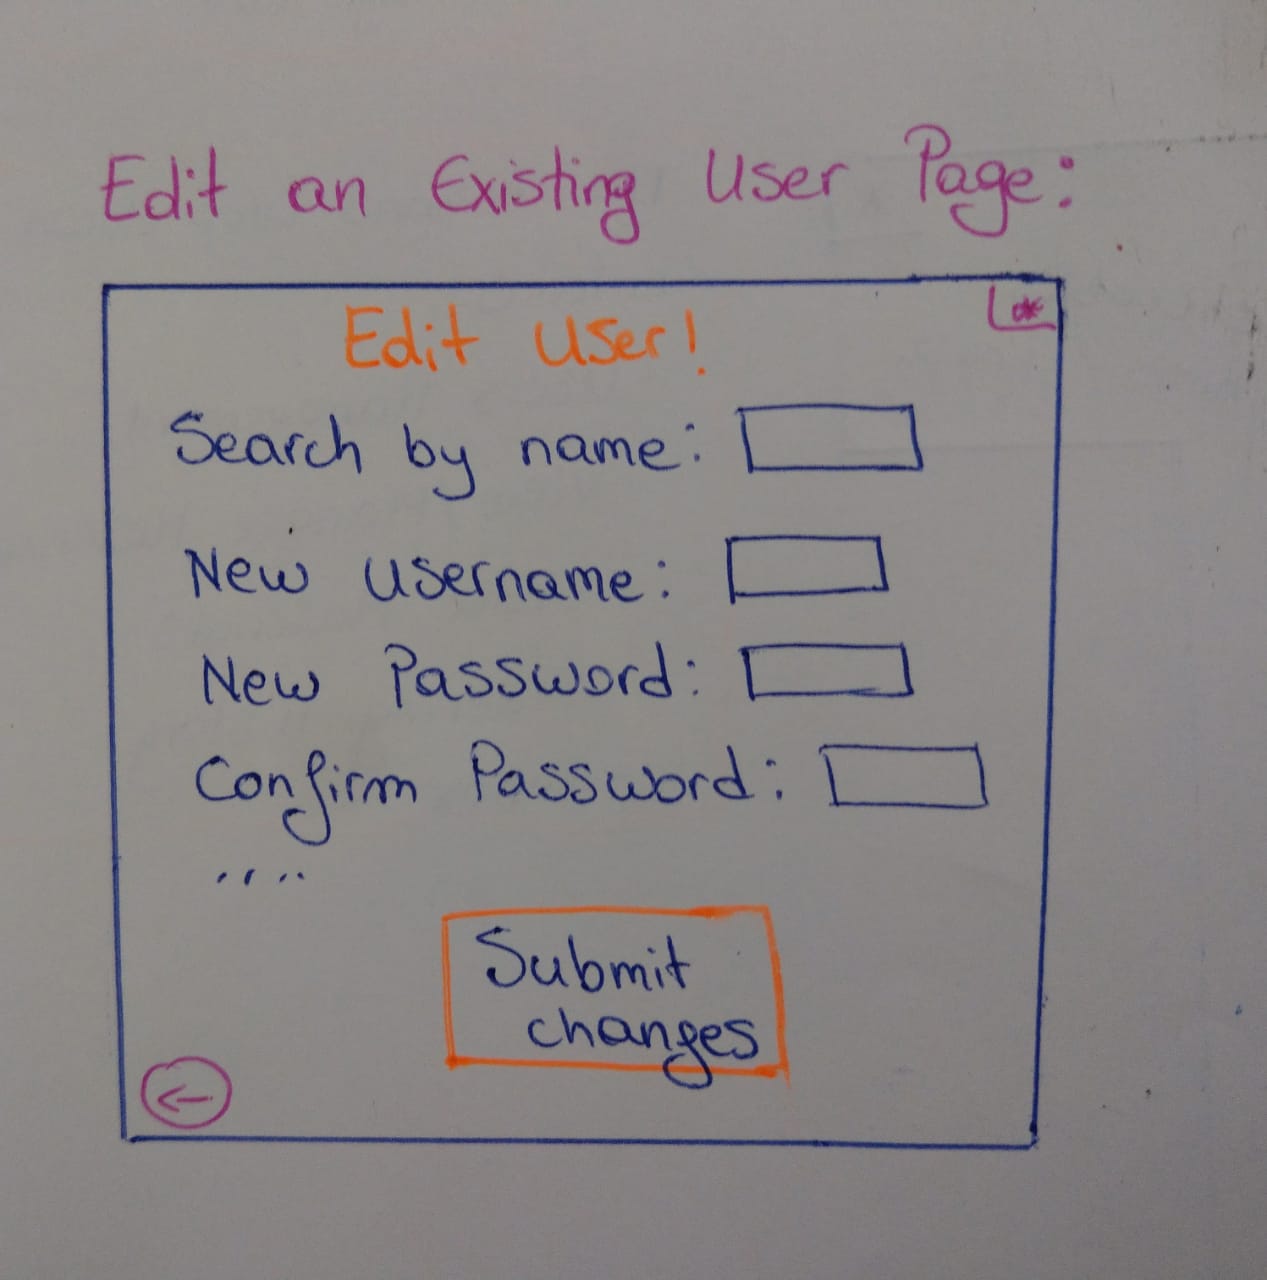 Edit an Existing User Page:
Edit User!
Search by name:
New username:
New Password:
Confirm Password:
....
Submit
changes